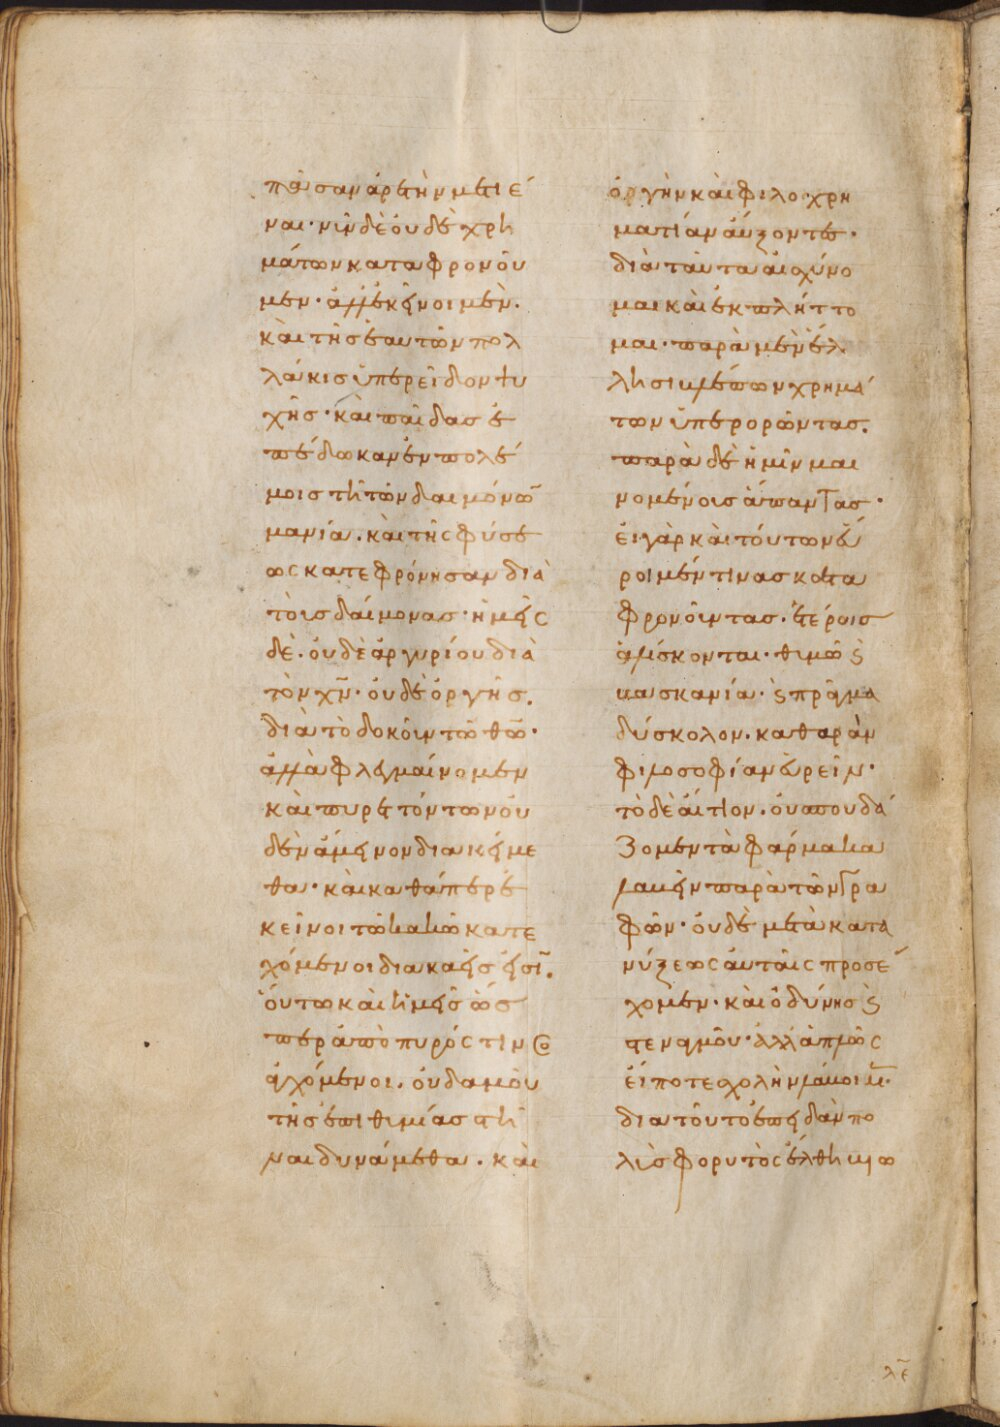 πᾶσαν ἀρετὴν μετιέ
ναι· νῦν δὲ οὐδὲ χρη
μάτων καταφρονοῦ
μεν· ἀλλ' ἐκεῖνοι μὲν.
καὶ τῆς ἑαυτῶν πολ
λάκις ὑπερεῖδον ψυ
χῆς· καὶ παῖδας ἐ
πέδωκαν ἐν πολέ
μοις τῆ τῶν δαιμόνω̅
μανία. καὶ τῆς φύσε
ως κατεφρόνησαν διὰ
τοὺς δαίμονας· ἡμεῖς
δὲ. οὐδὲ ἀργυρίου διὰ
τὸν χν̅· οὐδὲ ὀργῆς.
διὰ τὸ δοκοῦν τῶ θω̅·
ἀλλὰ φλεγμαίνομεν
καὶ πυρεττόντων οὐ
δὲν ἄμεινον διακείμε
θα· καὶ καθάπερ ἐ
κεῖνοι τῶ κακῶ κατε
χόμενοι διακαεῖς εἰσι̅.
οὕτω καὶ ἡμεῖς ὥς
περ ἀπὸ πυρός τινος
ἀγχόμενοι. οὐδαμοῦ
τῆς ἐπιθυμίας στῆ
ναι δυνάμεθα. καὶ
ὀργὴν καὶ φιλοχρη
ματίαν αὔξοντες·
διὰ ταῦτα αἰσχύνο
μαι καὶ ἐκπλήττο
μαι· παρὰ μὲν ἕλ
λησι βλέπων χρημά
των ὑπερορῶντας.
παρὰ δὲ ἡμῖν μαι
νομένοις ἅπαντας·
εἰ γὰρ καὶ τούτων εὕ
ροιμέν τινας κατα
φρονοῦντας. ἑτέροις
ἁλίσκονται· θυμῶ ϗ
βασκανία· ϗ πρᾶγμα
δύσκολον. καθαρὰν
φιλοσοφίαν εὑρεῖν·
τὸ δὲ αἴτιον. οὐ σπουδά
ζομεν τὰ φάρμακα
λαβεῖν παρὰ τῶν γρα
φῶν· οὐδὲ μετὰ κατα
νύξεως αὐταῖς προσέ
χομεν· καὶ ὀδύνης ϗ
στεναγμοῦ· ἀλλ' ἁπλῶς
εἴ ποτε σχολὴν λάβοιμ̅·
διὰ τοῦτο ἐπειδὰν πο
λὺς φορυτὸς ἔλθη βιω
λε̅